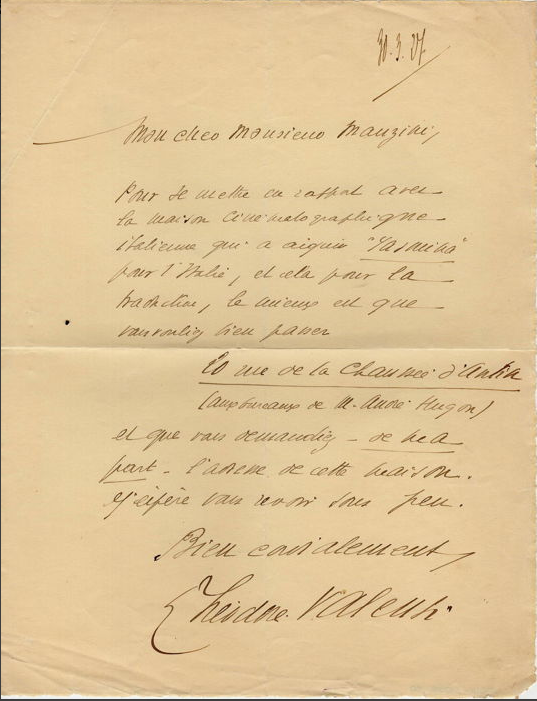 30.3.27
Mon cher Monsieur Manzini,
Pour se mettre en rapport avec
la maison cinématographique
italienne qui a acquis "Yasmina"
pour l'Italie, et cela pour la
traduction, le mieux est que
vous vouliez bien passer
20 rue de la Chaussée d'Antin
(aux bureaux de M. André Hugon)
et que vous demandiez - de ma
part - l'adresse de cette maison.
J'espère vous revoir sous peu.
Bien cordialement,
Théodore Valensi.